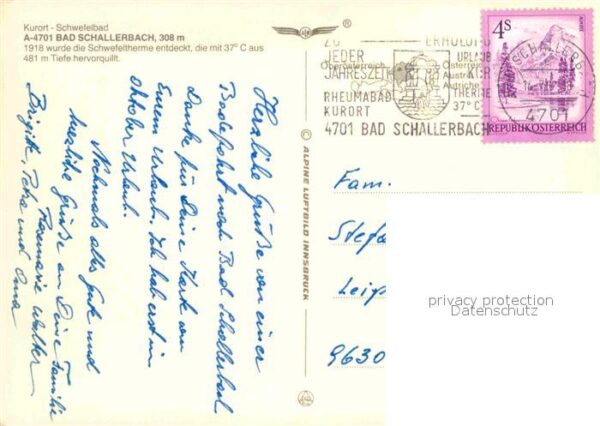 Kurort - Schwefelbad
A-4701 BAD SCHALLERBACH, 308 m
1918 wurde die Schwefeltherme entdeckt, die mit 37° C aus
481 m Tiefe hervorquillt.
Herzliche Grüße von einer
Badefahrt nach Bad Schallerbach
Danke für Deine Karte vom
Eurem Urlaub. Ich hab erst im
Oktober Urlaub.
Nochmals alles Gute und
herzliche Grüße an Deine Familie
Rosemarie Walter
Brigitte, Petra und Oma
© ALPINE LUFTBILD INNSBRUCK
®
ZU
JEDER
JAHRESZEIT
RHEUMABAD
KURORT
4701 BAD SCHALLERBACH
ERHOLUNG
URLAUB
KUR
THERME
37° C
Oberösterreich
Österreich
Austria
Autriche
SCHALLERB
4701
4S
REPUBLIK ÖSTERREICH
Fam.
Stefa
Leip
9630
privacy protection
Datenschutz